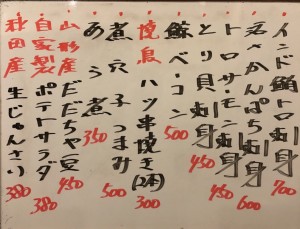 インド鮪トロ刺身 700
活さかんぱち刺身 600
トロサーモン刺身 450
とり貝刺身 450
鯨ベーコン 500
焼鳥 ハツ串焼き(2本) 300
煮穴子つまみ 500
あら煮 350
山形産 だだちゃ豆 450
自家製 ポテトサラダ 380
秋田産 生じゅんさい 380